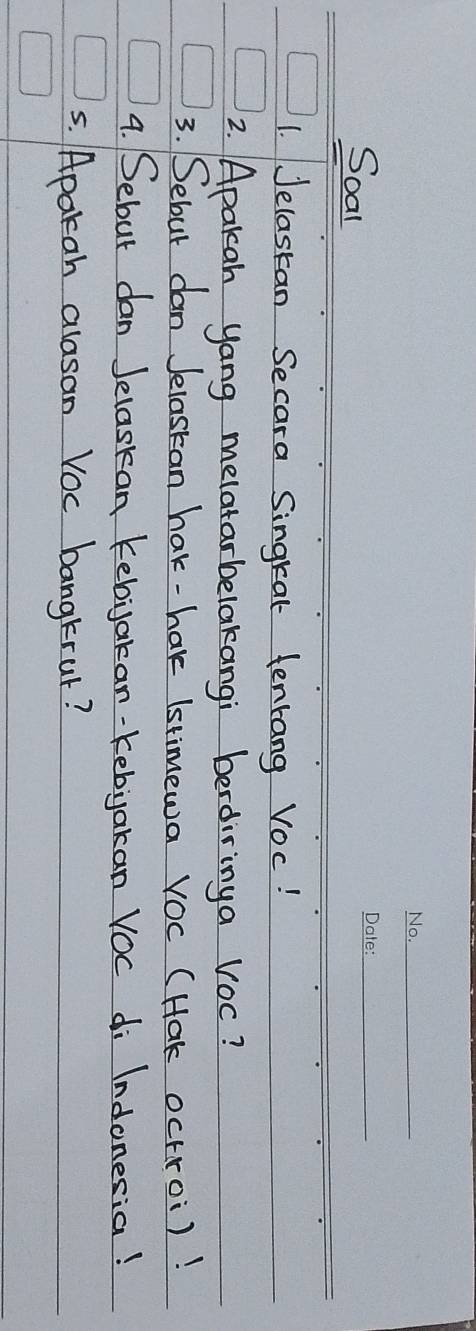 No.
Date:
Soal
1. Jelaskan Secara Singkat tentang VOC!
2. Apakah yang melatarbelakangi berdirinya VOC?
3. Sebut dan Jelaskan hak-hak Istimewa VOC (Hak octroi)!
4. Sebut dan Jelaskan kebijakan-kebijakan VOC di Indonesia!
5. Apakah alasan VOC bangkrut?